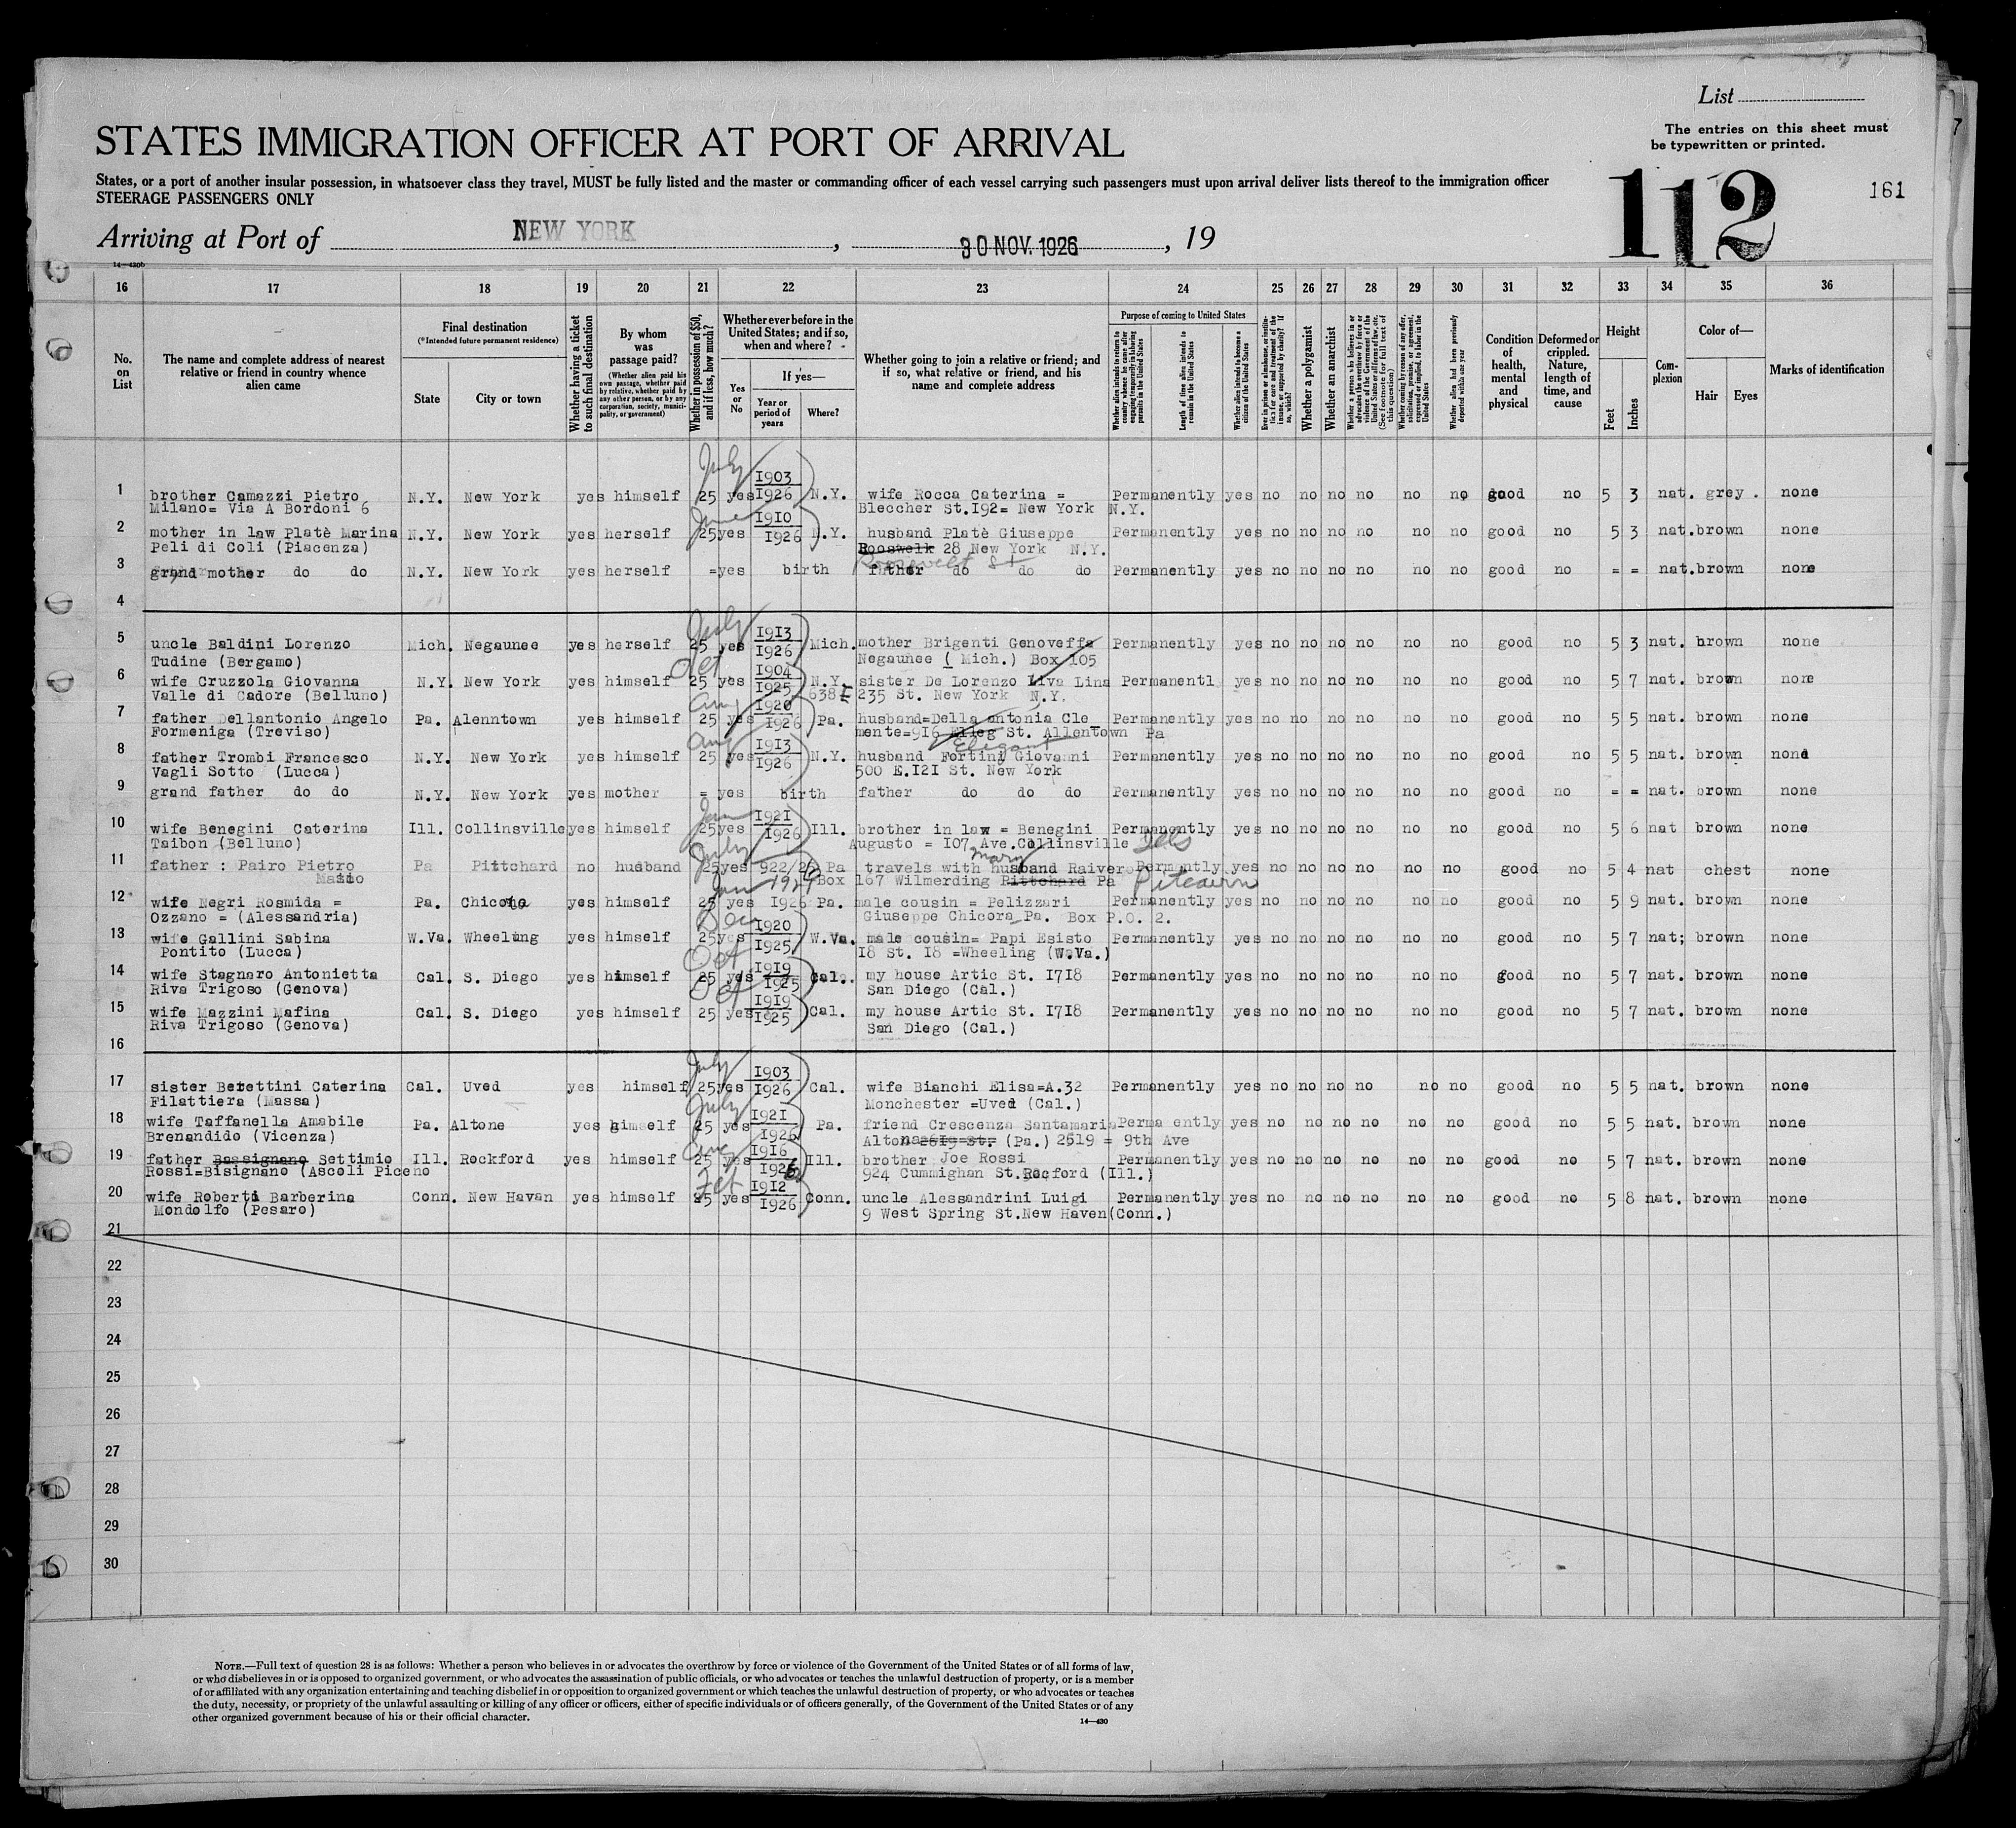 List
The entries on this sheet must
be typewritten or printed.
STATES IMMIGRATION OFFICER AT PORT OF ARRIVAL
112
161
States, or a port of another insular possession, in whatsoever class they travel, MUST be fully listed and the master or commanding officer of each vessel carrying such passengers must upon arrival deliver lists thereof to the immigration officer
STEERAGE PASSENGERS ONLY
Arriving at Port of NEW YORK , 30 NOV. 1926 , 19
14—430b
16 17 18 19 20 21 22 23 24 25 26 27 28 29 30 31 32 33 34 35 36
No. on List
The name and complete address of nearest relative or friend in country whence alien came
Final destination
(*Intended future permanent residence)
State
City or town
Whether having a ticket to such final destination
By whom was passage paid?
(Whether alien paid his own passage, whether paid by relative, whether paid by any other person, or by any corporation, society, municipality, or government)
Whether in possession of $50, and if less, how much?
Whether ever before in the United States; and if so, when and where?
Yes or No
If yes—
Year or period of years
Where?
Whether going to join a relative or friend; and if so, what relative or friend, and his name and complete address
Purpose of coming to United States
Whether alien intends to return to country whence he came after engaging temporarily in laboring pursuits in the United States
Length of time alien intends to remain in the United States
Whether alien intends to become a citizen of the United States
Ever in prison or almshouse, or institution for care and treatment of the insane, or supported by charity? If so, which?
Whether a polygamist
Whether an anarchist
Whether a person who believes in or advocates the overthrow by force or violence of the Government of the United States or all forms of law, etc. (See footnote for full text of this question)
Whether coming by reason of any offer, solicitation, promise, or agreement, expressed or implied, to labor in the United States
Whether alien had been previously deported within one year
Condition of health, mental and physical
Deformed or crippled. Nature, length of time, and cause
Height
Feet
Inches
Complexion
Color of—
Hair
Eyes
Marks of identification
July 1903
1 brother Camazzi Pietro N.Y. New York yes himself 25 yes 1926 N.Y. wife Rocca Caterina = Permanently yes no no no no no no good no 5 3 nat. grey. none
Milano= Via A Bordoni 6 Bleccher St.I92= New York N.Y.
June 1910
2 mother in law Platè Marina N.Y. New York yes herself 25 yes 1926 N.Y. husband Platè Giuseppe Permanently yes no no no no no no good no 5 3 nat. brown none
Peli di Coli (Piacenza) Rooswelk 28 New York N.Y.
Roosevelt St
3 grand mother do do N.Y. New York yes herself = yes birth father do do do Permanently yes no no no no no no good no = = nat. brown none
4
July 1913
5 uncle Baldini Lorenzo Mich. Negaunee yes herself 25 yes 1926 Mich. mother Brigenti Genoveffa Permanently yes no no no no no no good no 5 3 nat. brown none
Tudine (Bergamo) Negaunee ( Mich.) Box 105
Oct 1904
6 wife Cruzzola Giovanna N.Y. New York yes himself 25 yes 1925 N.Y. sister De Lorenzo Liva Lina Permanentl yes no no no no no no good no 5 7 nat. brown none
Valle di Cadore (Belluno) 638 E 235 St. New York N.Y.
Aug 1920
7 father Dellantonio Angelo Pa. Alenntown yes himself 25 yes 1926 Pa. husband=Della antonia Cle_ Permanently yes no no no no no no good no 5 5 nat. brown none
Formeniga (Treviso) mente=916 Elleg St. Allentown Pa
Elegant
Aug 1913
8 father Trombi Francesco N.Y. New York yes himself 25 yes 1926 N.Y. husband Fortini Giovanni Permanently yes no no no no no no good no 5 5 nat. brown none
Vagli Sotto (Lucca) 500 E.I2I St. New York
9 grand father do do N.Y. New York yes mother = yes birth father do do do Permanently yes no no no no no no good no = = nat. brown none
Jan 1921
10 wife Benegini Caterina Ill. Collinsville yes himself 25 yes 1926 Ill. brother in law = Benegini Permanently yes no no no no no no good no 5 6 nat brown none
Taibon (Belluno) Augusto = 107 Ave.Collinsville Ills
July
11 father : Pairo Pietro Pa Pittchard no husband 25 yes 922/26 Pa travels with husband Raivero Permantly yes no no no no no no good no 5 4 nat chest none
Box 167 Wilmerding Pittchard Pa Pitcairn
Jan 1921
12 wife Negri Rosmida = Pa. Chicora yes himself 25 yes 1926 Pa. male cousin = Pelizzari Permanently yes no no no no no no good no 5 9 nat. brown none
Ozzano = (Alessandria) Giuseppe Chicora Pa. Box P.O. 2.
Dec 1920
13 wife Gallini Sabina W.Va. Wheelung yes himself 25 yes 1925 W.Va. male cousin= Papi Esisto Permanently yes no no no no no no good no 5 7 nat; brown none
Pontito (Lucca) I8 St. I8 =Wheeling (W.Va.)
Oct 1919
14 wife Stagnaro Antonietta Cal. S. Diego yes himself 25 yes 1925 Cal. my house Artic St. I7I8 Permanently yes no no no no no no good no 5 7 nat. brown none
Riva Trigoso (Genova) San Diego (Cal.)
Oct 1919
15 wife Mazzini Mafina Cal. S. Diego yes himself 25 yes 1925 Cal. my house Artic St. I7I8 Permanently yes no no no no no no good no 5 7 nat. brown none
Riva Trigoso (Genova) San Diego (Cal.)
16
July 1903
17 sister Bezettini Caterina Cal. Uved yes himself 25 yes 1926 Cal. wife Bianchi Elisa=A.32 Permanently yes no no no no no no good no 5 5 nat. brown none
Filattiera (Massa) Monchester =Uved (Cal.)
July 1921
18 wife Taffanella Amabile Pa. Altone yes himself 25 yes 1926 Pa. friend Crescenza Santamaria Perma ently yes no no no no no no good no 5 5 nat. brown none
Brenandido (Vicenza) Altona 2619 St. (Pa.) 2619 = 9th Ave
Aug 1916
19 father Bassignano Settimio Ill. Rockford yes himself 25 yes 1926 Ill. brother Joe Rossi Permanently yes no no no no no no good no 5 7 nat. brown none
Rossi=Bisignano (Ascoli Piceno 924 Cummighan St.Rocford (Ill.)
Feb 1912
20 wife Roberti Barberina Conn. New Havan yes himself 25 yes 1926 Conn. uncle Alessandrini Luigi Permanently yes no no no no no no good no 5 8 nat. brown none
Mondolfo (Pesaro) 9 West Spring St.New Haven(Conn.)
21
22
23
24
25
26
27
28
29
30
NOTE.—Full text of question 28 is as follows: Whether a person who believes in or advocates the overthrow by force or violence of the Government of the United States or of all forms of law,
or who disbelieves in or is opposed to organized government, or who advocates the assassination of public officials, or who advocates or teaches the unlawful destruction of property, or is a member
of or affiliated with any organization entertaining and teaching disbelief in or opposition to organized government or which teaches the unlawful destruction of property, or who advocates or teaches
the duty, necessity, or propriety of the unlawful assaulting or killing of any officer or officers, either of specific individuals or of officers generally, of the Government of the United States or of any
other organized government because of his or their official character.
14—430